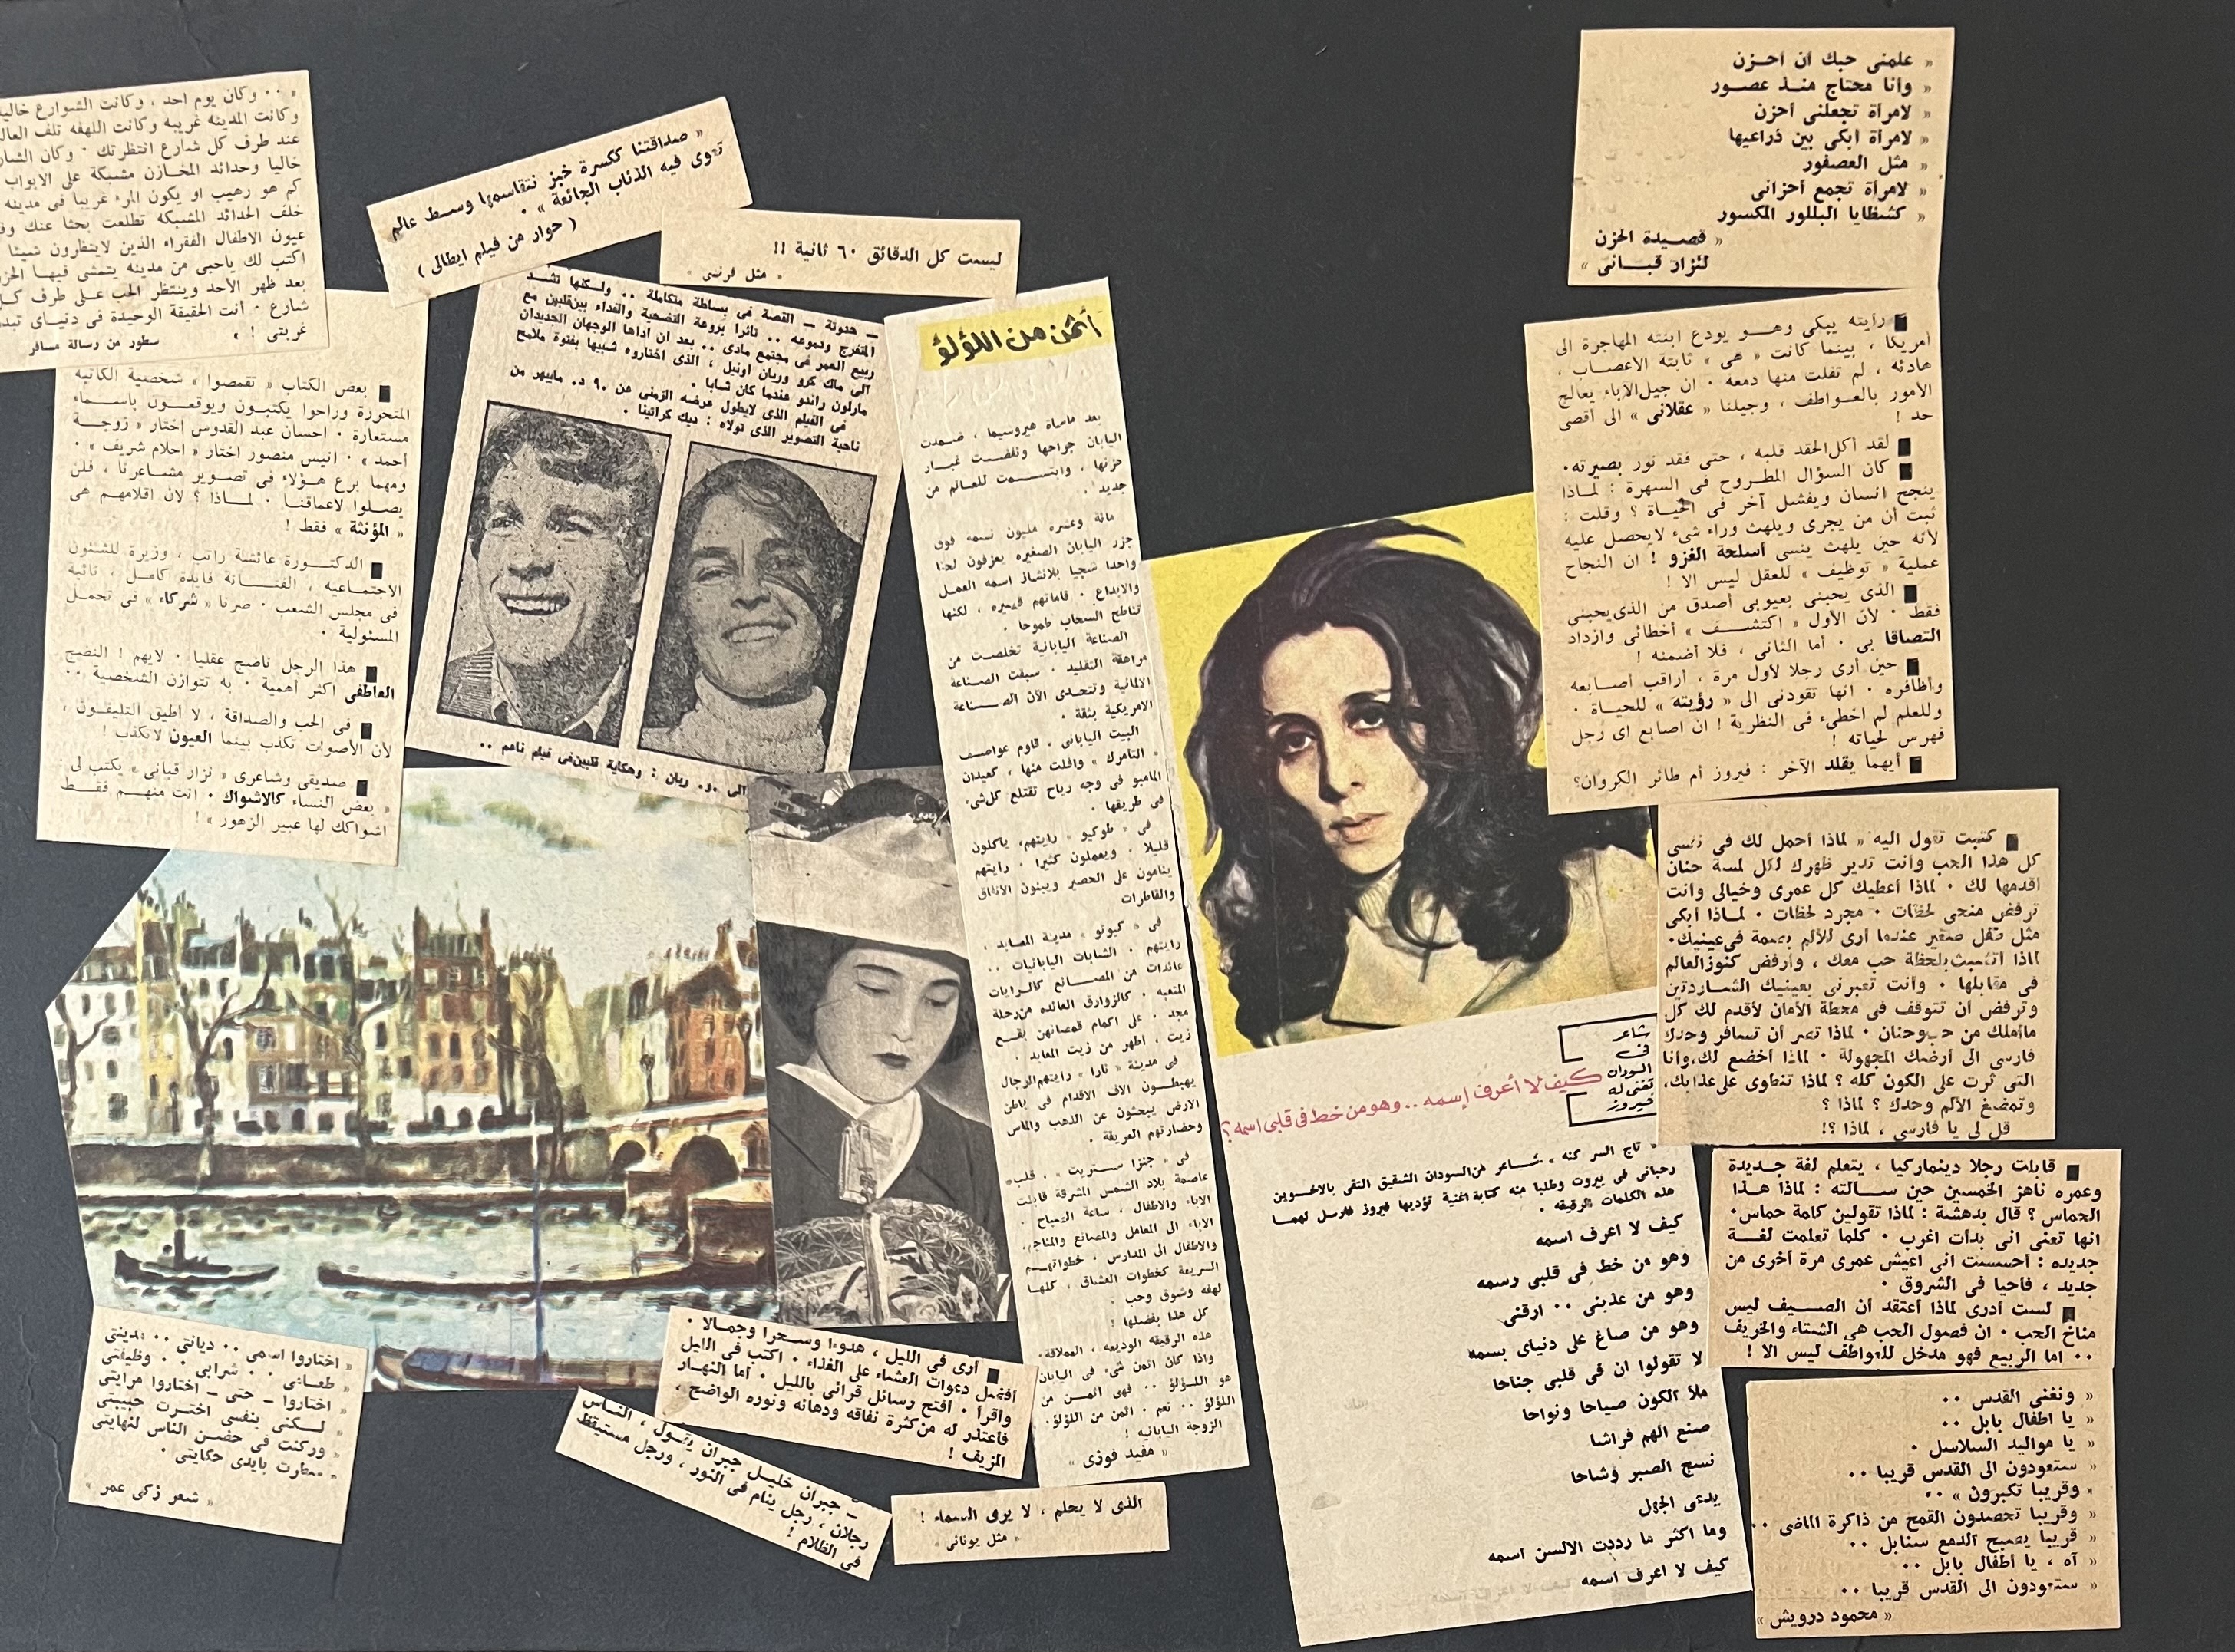 « علمنى حبك أن أحزن
« وأنا محتاج منذ عصور
« لامرأة تجعلنى أحزن
« لامرأة أبكى بين ذراعيها
« مثل العصفور
« لامرأة تجمع أحزانى
« كشظايا البللور المكسور
« قصيدة الحزن
لنزار قبانى »
■ رأيته يبكى وهو يودع ابنته المهاجرة الى
أمريكا ، بينما كانت « هى » ثابتة الأعصاب ،
هادئه ، لم تفلت منها دمعه . ان جيل الآباء يعالج
الأمور بالعواطف ، وجيلنا « عقلانى » الى أقصى
حد !
■ لقد أكل الحقد قلبه ، حتى فقد نور بصيرته .
■ كان السؤال المطروح فى السهرة : لماذا
ينجح انسان ويفشل آخر فى الحياة ؟ وقلت :
ثبت أن من يجرى ويلهث وراء شىء لايحصل عليه
لأنه حين يلهث ينسى أسلحة الغزو ! ان النجاح
عملية « توظيف » للعقل ليس الا !
■ الذى يحبنى بعيوبى أصدق من الذى يحبنى
فقط . لأن الأول « اكتشف » أخطائى وازداد
التصاقا بى . أما الثانى ، فلا أضمنه !
■ حين أرى رجلا لأول مرة ، أراقب أصابعه
وأظافره . انها تقودنى الى « رؤيته » للحياة .
وللعلم لم اخطىء فى النظرية ! ان اصابع اى رجل
فهرس لحياته !
■ أيهما يقلد الآخر : فيروز أم طائر الكروان ؟
■ كتبت تقول اليه « لماذا أحمل لك فى نفسى
كل هذا الحب وأنت تدير ظهرك لكل لمسة حنان
أقدمها لك . لماذا أعطيك كل عمرى وخيالى وأنت
ترفض منحى لحظات . مجرد لحظات . لماذا أبكى
مثل طفل صغير عندما أرى للألم بصمة فى عينيك .
لماذا أتشبث بلحظة حب معك ، وأرفض كنوز العالم
فى مقابلها . وأنت تعبرنى بعينيك الشاردتين
وترفض أن تتوقف فى محطة الأمان لأقدم لك كل
ماأملك من حب وحنان . لماذا تصر أن تسافر وحدك
فارسى الى أرضك المجهولة . لماذا أخضع لك ، وأنا
التى ثرت على الكون كله ؟ لماذا تنطوى على عذابك ،
وتمضغ الألم وحدك ؟ لماذا ؟
قل لى يا فارسى ، لماذا ؟!
■ قابلت رجلا دينماركيا ، يتعلم لغة جديدة
وعمره ناهز الخمسين حين سالته : لماذا هذا
الحماس ؟ قال بدهشة : لماذا تقولين كلمة حماس .
انها تعنى انى بدأت اغرب . كلما تعلمت لغة
جديده : أحسست انى اعيش عمرى مرة أخرى من
جديد ، فاحيا فى الشروق .
■ لست أدرى لماذا أعتقد أن الصيف ليس
مناخ الحب . ان فصول الحب هى الشتاء والخريف
.. اما الربيع فهو مدخل للعواطف ليس الا !
« ونغنى القدس ..
« يا اطفال بابل ..
« يا مواليد السلاسل .
« ستعودون الى القدس قريبا ..
« وقريبا تكبرون » ..
« وقريبا تحصدون القمح من ذاكرة الماضى ..
« قريبا يصبح الدمع سنابل ..
« آه ، يا أطفال بابل ..
« ستعودون الى القدس قريبا ..
« محمود درويش »
شاعر
فى
السودان
تغنى له
فيروز
كيف لا أعرف إسمه .. وهو من خط فى قلبى اسمه ؟
« تاج السر كنه » شاعر من السودان الشقيق التقى بالاخوين
رحبانى فى بيروت وطلبا منه كتابة اغنية تؤديها فيروز فارسل لهما
هذه الكلمات الرقيقه .
كيف لا اعرف اسمه
وهو من خط فى قلبى رسمه
وهو من عذبنى .. ارقنى
وهو من صاغ على دنياى بسمه
لا تقولوا ان فى قلبى جناحا
ملأ الكون صياحا ونواحا
صنع الهم فراشا
نسج الصبر وشاحا
يدعى الجهل
وما اكثر ما رددت الالسن اسمه
كيف لا اعرف اسمه
أثمن من اللؤلؤ
بعد مأساة هيروسيما ، ضمدت
اليابان جراحها ونفضت غبار
حزنها ، وابتسمت للعالم من
جديد .
مائة وعشره مليون نسمه فوق
جزر اليابان الصغيره يعزفون لحنا
واحدا شجيا بلا نشاز اسمه العمل
والابداع . قاماتهم قصيره ، لكنها
تناطح السحاب طموحا .
الصناعة اليابانية تخلصت من
مراهقة التقليد . سبقت الصناعة
الالمانية وتتحدى الآن الصناعة
الامريكية بثقة .
البيت اليابانى ، قاوم عواصف
« التأمرك » وافلت منها ، كعيدان
البامبو فى وجه رياح تقتلع كل شىء
فى طريقها .
فى « طوكيو » رايتهم ، ياكلون
قليلا . ويعملون كثيرا . رايتهم
ينامون على الحصير ويبنون الانفاق
والقاطرات
فى « كيوتو » مدينة المعابد ،
رايتهم . الشابات اليابانيات ..
عائدات من المصانع كالرايات
المتعبه . كالزوارق العائده من رحلة
مجد . على اكمام قمصانهن بقع
زيت ، أطهر من زيت المعابد .
فى مدينة « نارا » رايتهم الرجال
يهبطون الاف الاقدام فى باطن
الارض يبحثون عن الذهب والماس
وحضارتهم العريقة .
فى « جنزا ستريت » ، قلب
عاصمة بلاد الشمس المشرقة قابلت
الاباء والاطفال ، ساعة الصباح .
الاباء الى المعامل والمصانع والمناجم
والاطفال الى المدارس . خطواتهم
السريعة كخطوات العشاق ، كلها
لهفه وشوق وحب .
كل هذا بفضلها !
هذه الرقيقه الوديعه ، العملاقة .
واذا كان اثمن شىء فى اليابان
هو اللؤلؤ .. فهى اثمن من
اللؤلؤ .. نعم . اثمن من اللؤلؤ .
الزوجة اليابانيه !
« مفيد فوزى »
« صداقتنا ككسرة خبز نتقاسمها وسط عالم
تعوى فيه الذئاب الجائعة » .
( حوار من فيلم ايطالى )
ليست كل الدقائق ٦٠ ثانية !!
« مثل فرنسى »
ــ حدوتة ــ القصة فى بساطة متكاملة .. ولكنها تشد
المتفرج ودموعه .. تاثرا بروعة التضحية والفداء بين قلبين مع
ربيع العمر فى مجتمع مادى .. بعد ان اداها الوجهان الجديدان
آلى ماك جرو وريان اونيل ، الذى اختاروه شبيها بفتوة ملامح
مارلون راندو عندما كان شابا .
فى الفيلم الذى لايطول عرضه الزمنى عن ٩٠ د. مايبهر من
ناحية التصوير الذى تولاه : ديك كراتينا .
الى .و. ريان : وحكاية قلبين فى فيلم ناعم ..
« .. وكان يوم احد ، وكانت الشوارع خالية
وكانت المدينه غريبه وكانت اللهفه تلف العالم
عند طرف كل شارع انتظرتك . وكان الشارع
خاليا وحدائد المخازن مشبكة على الابواب
كم هو رهيب او يكون المرء غريبا فى مدينه
خلف الحدائد المشبكه تطلعت بحثا عنك وفى
عيون الاطفال الفقراء الذين لاينتظرون شيئا
اكتب لك ياحبى من مدينه يتمشى فيها الحزن
بعد ظهر الأحد وينتظر الحب على طرف كل
شارع . أنت الحقيقة الوحيدة فى دنياى تبدد
غربتى ! »
سطور من رسالة مسافر
■ بعض الكتاب « تقمصوا » شخصية الكاتبه
المتحررة وراحوا يكتبون ويوقعون بأسماء
مستعارة . احسان عبد القدوس اختار « زوجة
أحمد » . انيس منصور اختار « احلام شريف » .
ومهما برع هؤلاء فى تصوير مشاعرنا ، فلن
يصلوا لاعماقنا . لماذا ؟ لان اقلامهم هى
« المؤنثة » فقط !
■ الدكتورة عائشة راتب ، وزيرة للشئون
الاجتماعيه ، الفنانة فايدة كامل ، نائبة
فى مجلس الشعب . صرنا « شركاء » فى تحمل
المسئولية .
■ هذا الرجل ناضج عقليا . لايهم ! النضج
العاطفى اكثر أهمية . به تتوازن الشخصية ..
■ فى الحب والصداقة ، لا أطيق التليفون ،
لأن الأصوات تكذب بينما العيون لاتكذب !
■ صديقى وشاعرى « نزار قبانى » يكتب لى :
« بعض النساء كالاشواك . انت منهم فقط
اشواكك لها عبير الزهور » !
« اختاروا اسمى .. ديانتى .. مدينتى
« طعامى .. شرابى .. وظيفتى
« اختاروا ــ حتى ــ اختاروا مرايتى
« لكنى بنفسى اخترت حبيبتى
« وركنت فى حضن الناس لنهايتى
« سطرت بايدى حكايتى .
« شعر زكى عمر »
■ أرى فى الليل ، هدوءا وسحرا وجمالا .
أفضل دعوات العشاء على الغذاء . اكتب فى الليل
وأقرأ . أفتح رسائل قرائى بالليل . أما النهار
فاعتذر له من كثرة نفاقه ودهانه ونوره الواضح ،
المزيف !
ــ جبران خليل جبران يقول ، الناس
رجلان ، رجل ينام فى النور ، ورجل مستيقظ
فى الظلام !
الذى لا يحلم ، لا يرى السماء !
« مثل يونانى »